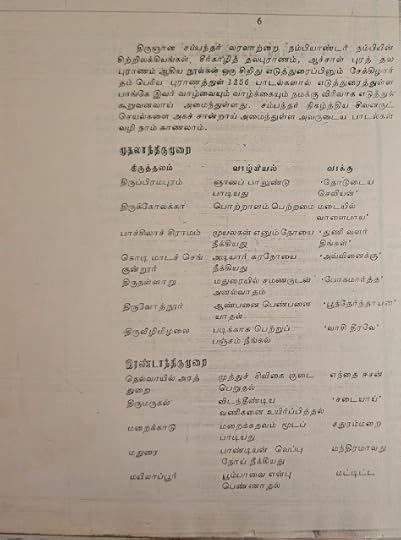 6
திருஞான சம்பந்தர் வரலாற்றை நம்பியாண்டர் நம்பியின்
சிற்றிலக்கியங்கள், சீர்காழித் தலபுராணம், ஆச்சாள் புரத் தல
புராணம் ஆகிய நூல்கள் ஒரு சிறிது எடுத்துரைப்பினும் சேக்கிழார்
தம் பெரிய புராணத்துள் 1256 பாடல்களால் எடுத்துரைத்துள்ள
பாங்கே இவர் வாழ்வையும் வாழ்க்கையும் நமக்கு விரிவாக எடுத்துக்
கூறுவனவாய் அமைந்துள்ளது. சம்பந்தர் நிகழ்த்திய சிவனருட்
செயல்களை அகச் சான்றாய் அமைந்துள்ள அவருடைய பாடல்கள்
வழி நாம் காணலாம்.
முதலாந்திருமுறை
திருத்தலம் வாழ்வியல் வாக்கு
திருப்பிரமபுரம் ஞானப் பாலுண்டு 'தோடுடைய
பாடியது செவியன்'
திருக்கோலக்கா பொற்றாளம் பெற்றமை 'மடையில்
வாளைபாய'
பாச்சிலாச் சிராமம் முயலகன் எனும் நோயை 'துணி வளர்
நீக்கியது திங்கள்'
கொடி மாடச் செங் அடியார் சுரநோயை 'அவ்வினைக்கு'
குன்றூர் நீக்கியது
திருநள்ளாறு மதுரையில் சமணருடன் 'போகமார்த்த'
அனல்வாதம்
திருவோத்தூர் ஆண்பனை பெண்பனை 'பூந்தேர்ந்தாயன'
யாதல்
திருவீழிமிழலை படிக்காசு பெற்றுப் 'வாசி தீரவே'
பஞ்சம் நீங்கல்
இரண்டாந்திருமுறை
நெல்வாயில் அரத் முத்துச் சிவிகை குடை எந்தை ஈசன்
துறை பெறுதல்
திருமருகல் விடந்தீண்டிய 'சடையாய்'
வணிகனை உயிர்ப்பித்தல்
மறைக்காடு மறைக்கதவம் மூடப் சதுரம்மறை
பாடியது
மதுரை பாண்டியன் வெப்பு மந்திரமாவது
நோய் நீக்கியது
மயிலாப்பூர் பூம்பாவை என்பு மட்டிட்ட
பெண்ணாதல்